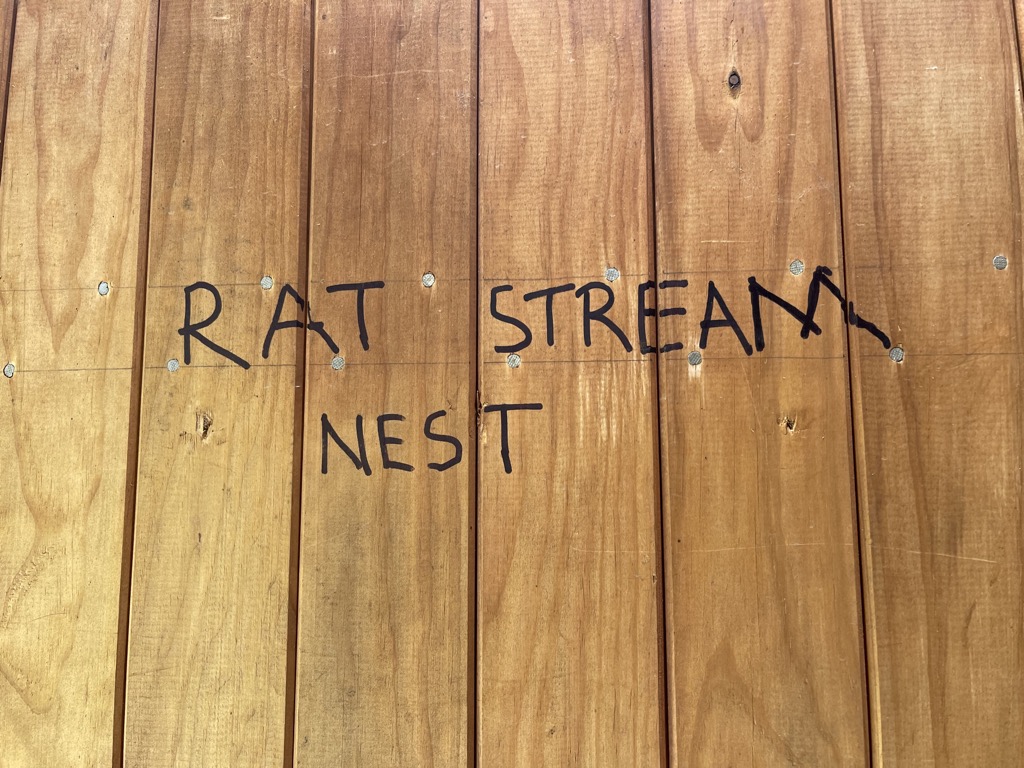 RAT STREAM
NEST